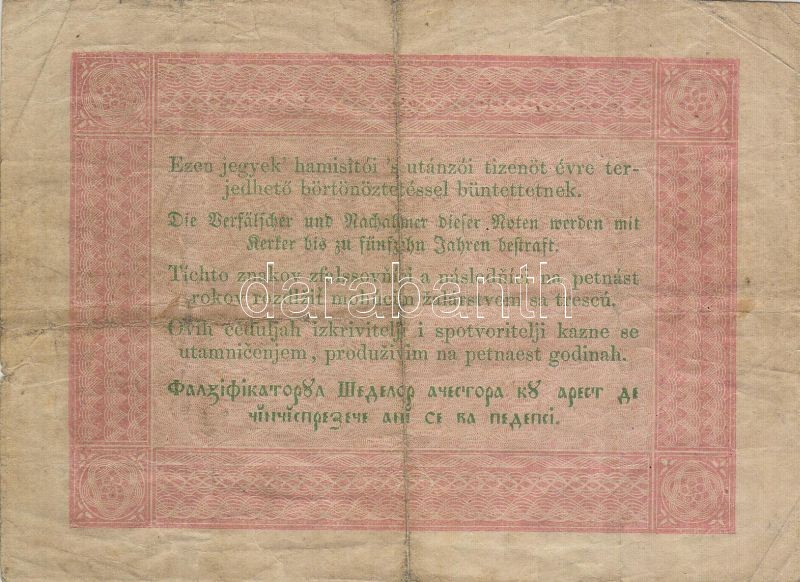 Ezen jegyek' hamisitói 's utánzói tizenöt évre ter-
jedhető börtönöztetéssel büntettetnek.
Die Verfälscher und Nachahmer dieser Noten werden mit
Kerker bis zu fünfzehn Jahren bestraft.
Tíchto znakov a následňíci na petnást
rokov žalárstvom sa trescú.
Ovih ceduljah izkrivitelji i spotvoritelji kazne se
utamničenjem, produživim na petnaest godinah.
Фалꙁіфікаторꙋл Шеделор ачестора кꙋ арест де
чінчіспреꙁече ані се ва педепсі.
darabanth